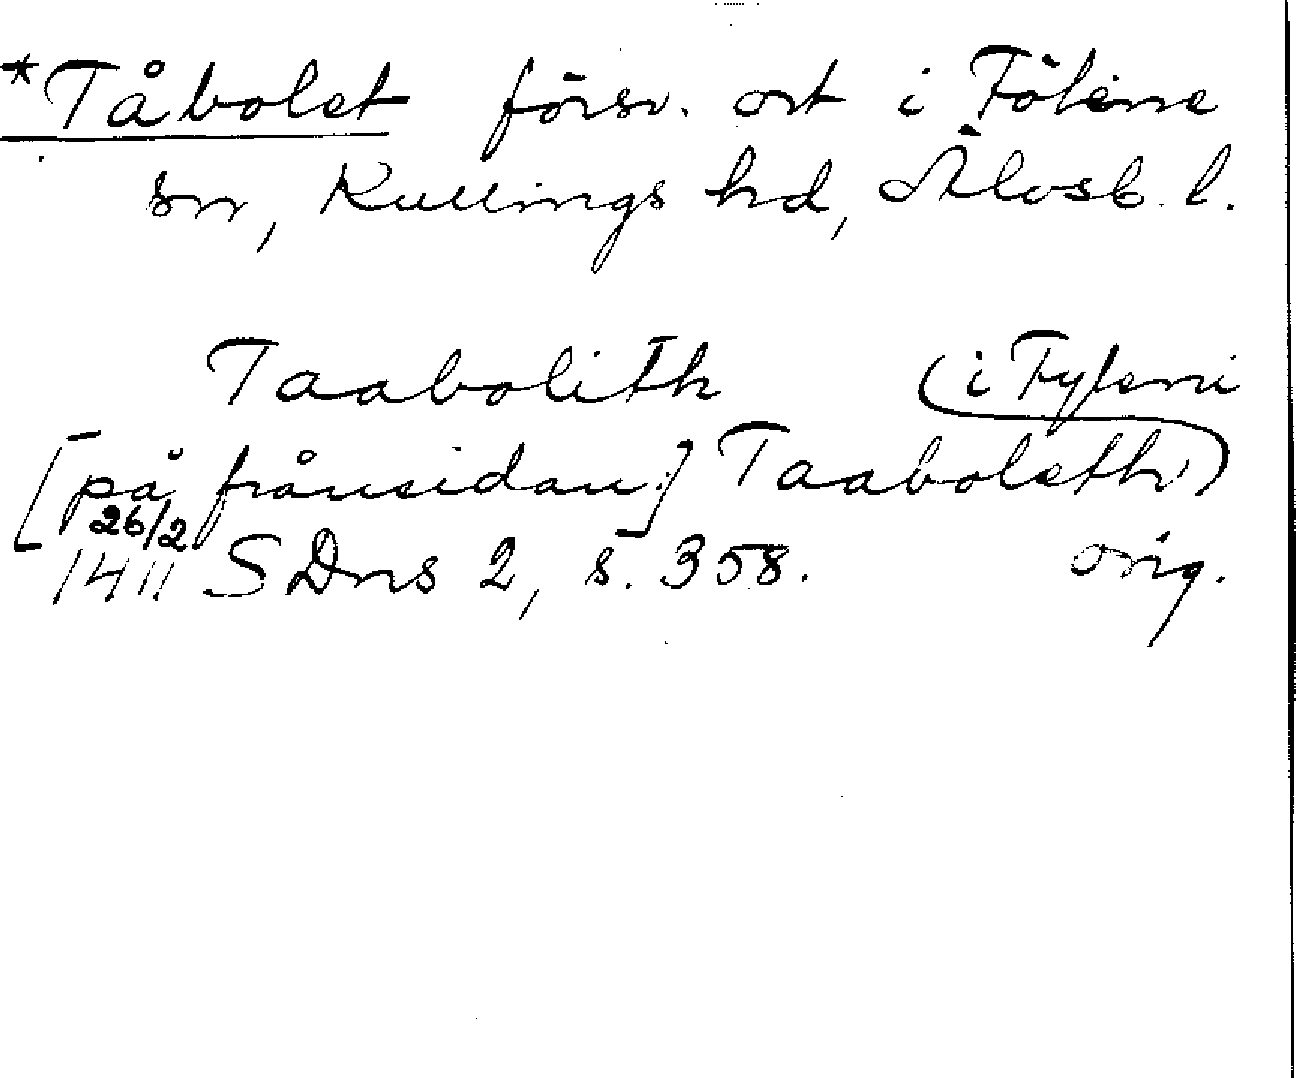 *Tåbolet försv. ort i Fölene
sn, Kullings hd, Älvsb. l.
Taabolith (i Fyleni
[på frånsidan:] Taaboleth)
26/2
1411 SDns 2, s. 358. orig.